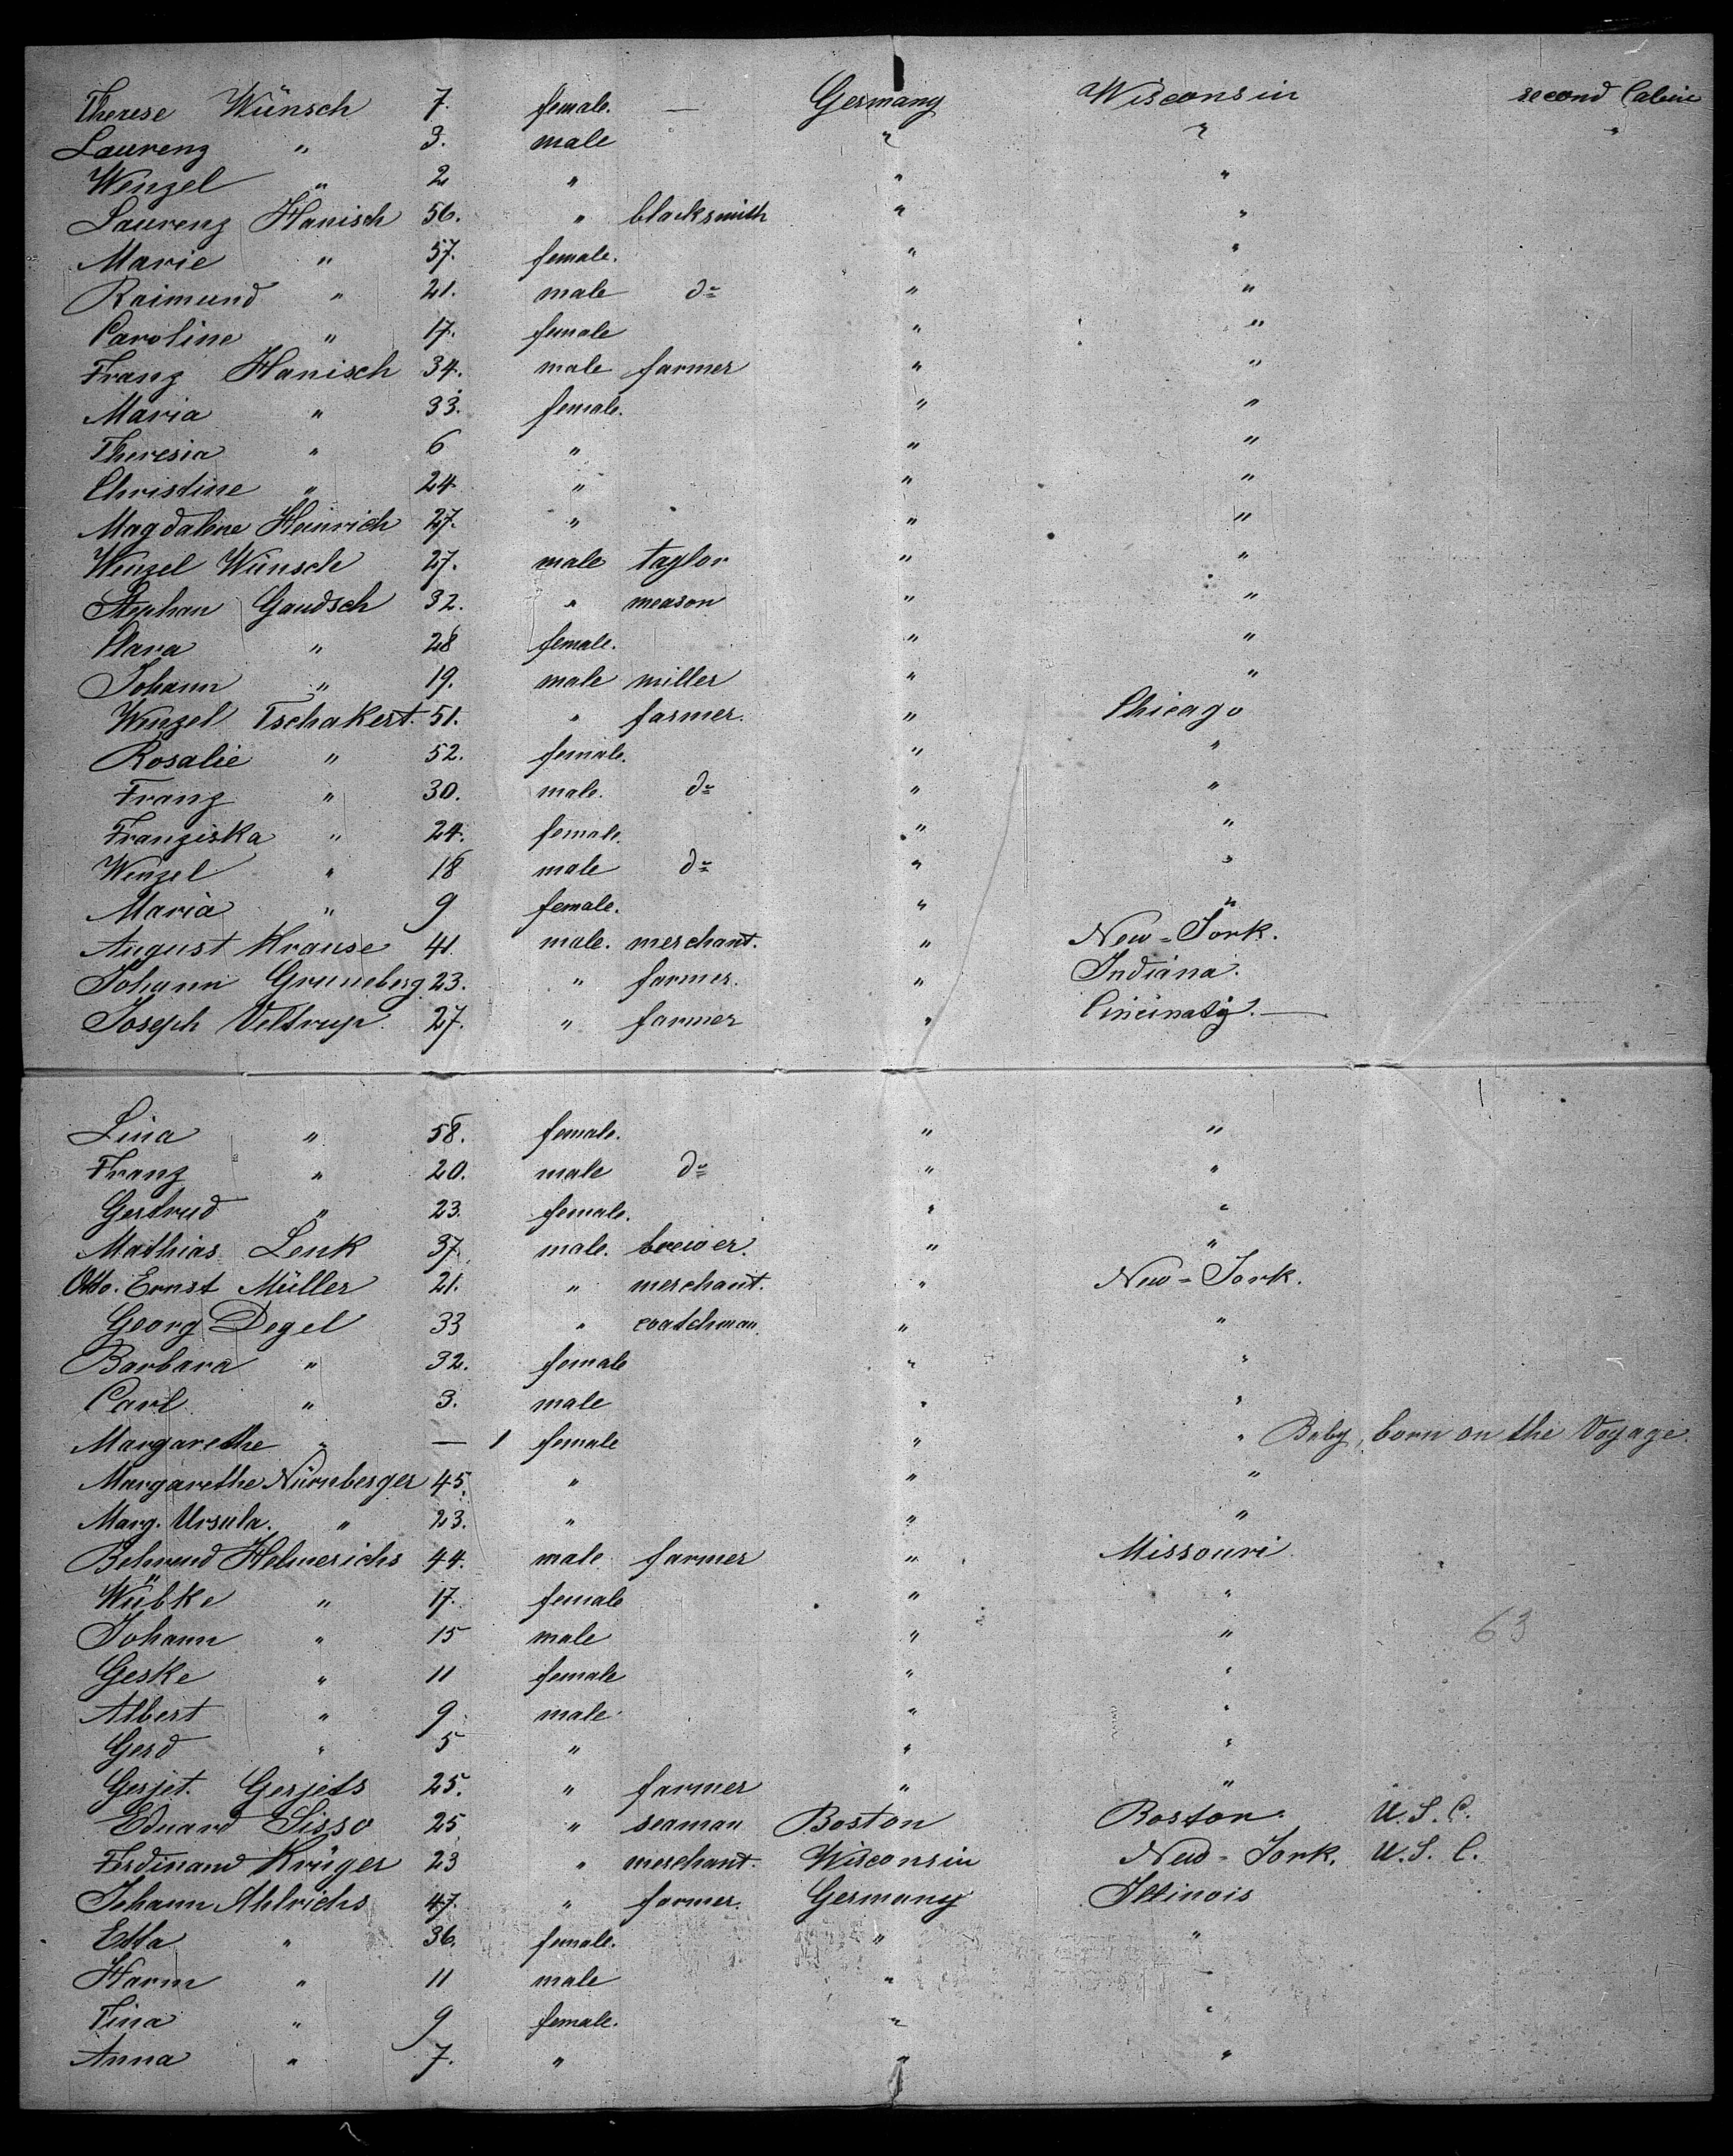 Therese Wünsch 7. female. — Germany Wisconsin second Cabin
Laurenz " 3. male " " "
Wenzel " 2 " " "
Laurenz Hanisch 56. " blacksmith " "
Marie " 57. female. " "
Raimund " 21. male do " "
Caroline " 17. female " "
Franz Hanisch 34. male farmer " "
Maria " 33. female. " "
Theresia " 6 " " "
Christine " 24 " " "
Magdalene Heinrich 27. " " "
Wenzel Wünsch 27. male taylor " "
Stephan Gaudsch 32. " meason " "
Clara " 28 female. " "
Johann " 19. male miller " "
Wenzel Tschakert. 51. " farmer. " Chicago
Rosalie " 52. female. " "
Franz " 30. male. do " "
Franziska " 24. female. " "
Wenzel " 18 male do " "
Maria " 9 female. " "
August Krause 41. male. merchant. " New-York.
Johann Gruneberg 23. " farmer. " Indiana.
Joseph Veltrup. 27. " farmer " Cincinaty. —
Lina " 58. female. " "
Franz " 20. male do " "
Gertrud " 23. female. " "
Mathias Lenk 37. male. brewer. " "
Otto. Ernst Müller 21. " merchant. " New-York.
Georg Degel 33 " coatchman " "
Barbara " 32. female " "
Carl " 3. male " "
Margarethe " — 1 female " " Baby, born on the Voyage.
Margarethe Nürnberger 45. " " "
Marg. Ursula. " 23. " " "
Behrend Helmerichs 44. male farmer " Missouri
Wübke " 17. female " "
Johann " 15 male " " 63
Geske " 11 female " "
Albert " 9. male " "
Gerd " 5 " " "
Gerjet. Gerjets 25. " farmer " "
Eduard Sisso 25 " seaman Boston Boston. U.S.C.
Ferdinand Krüger 23 " merchant. Wisconsin New-York. U.S.C.
Johann Ahlrichs 47. " farmer. Germany Illinois
Etta " 36. female. " "
Harm " 11 male " "
Tina " 9 female. " "
Anna " 7. " " "